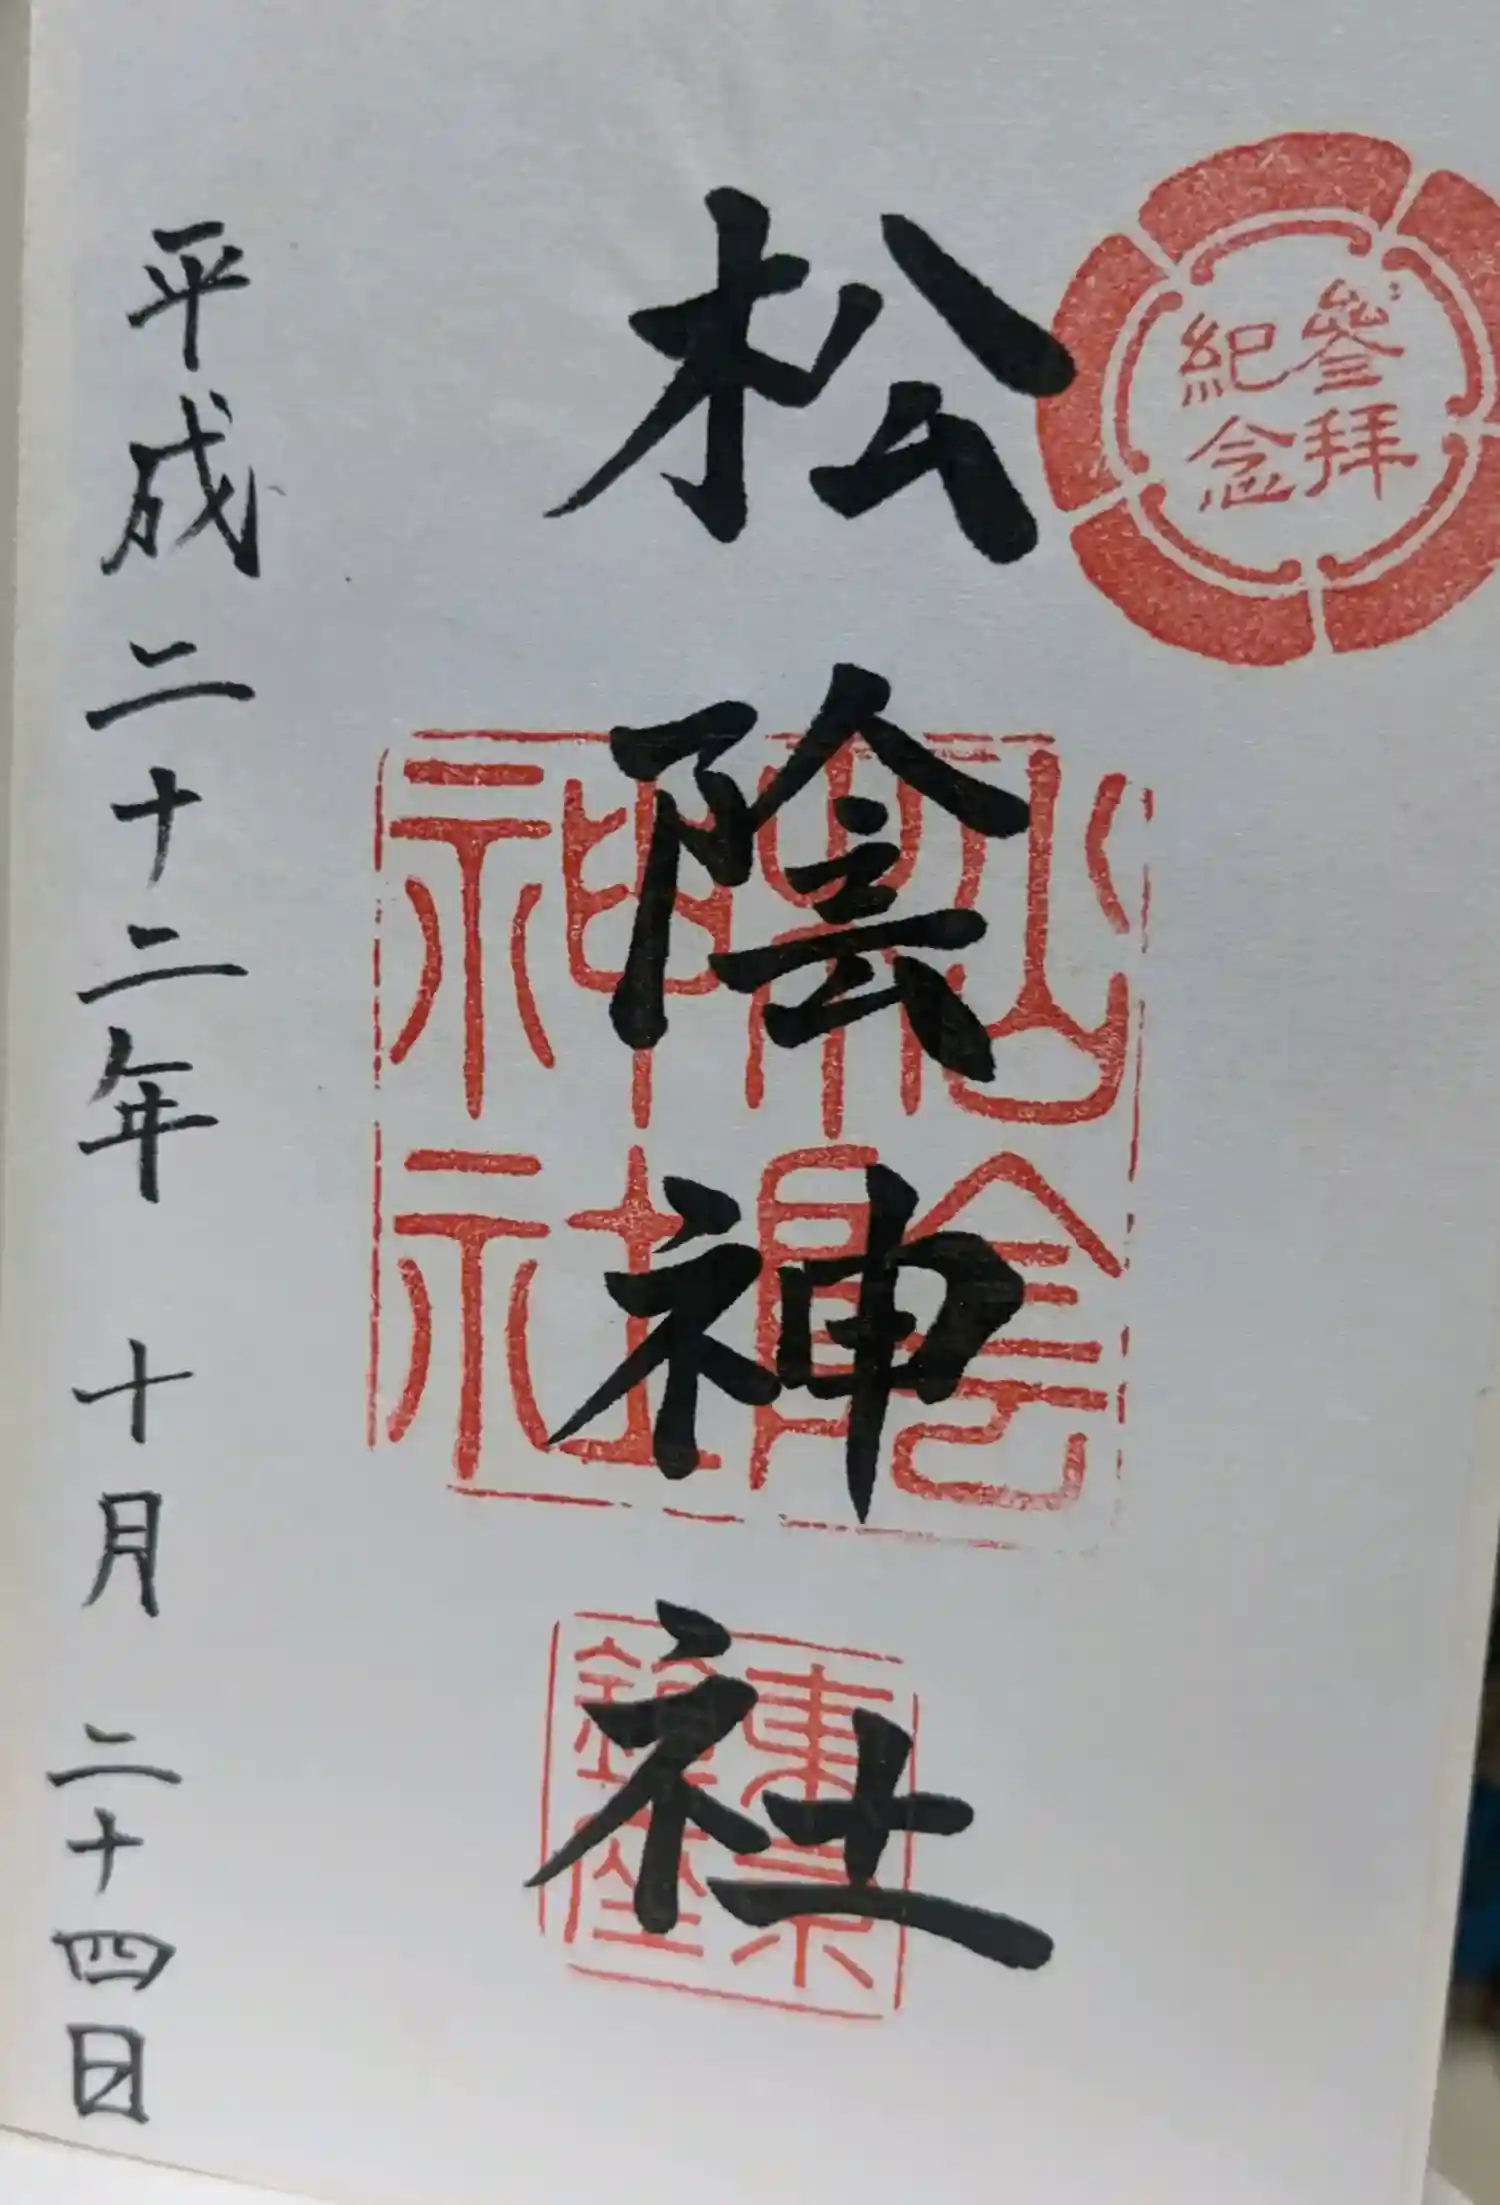 参拝
紀念
松陰神社
松陰
神社
東京
鎮座
平成二十二年 十月 二十四日